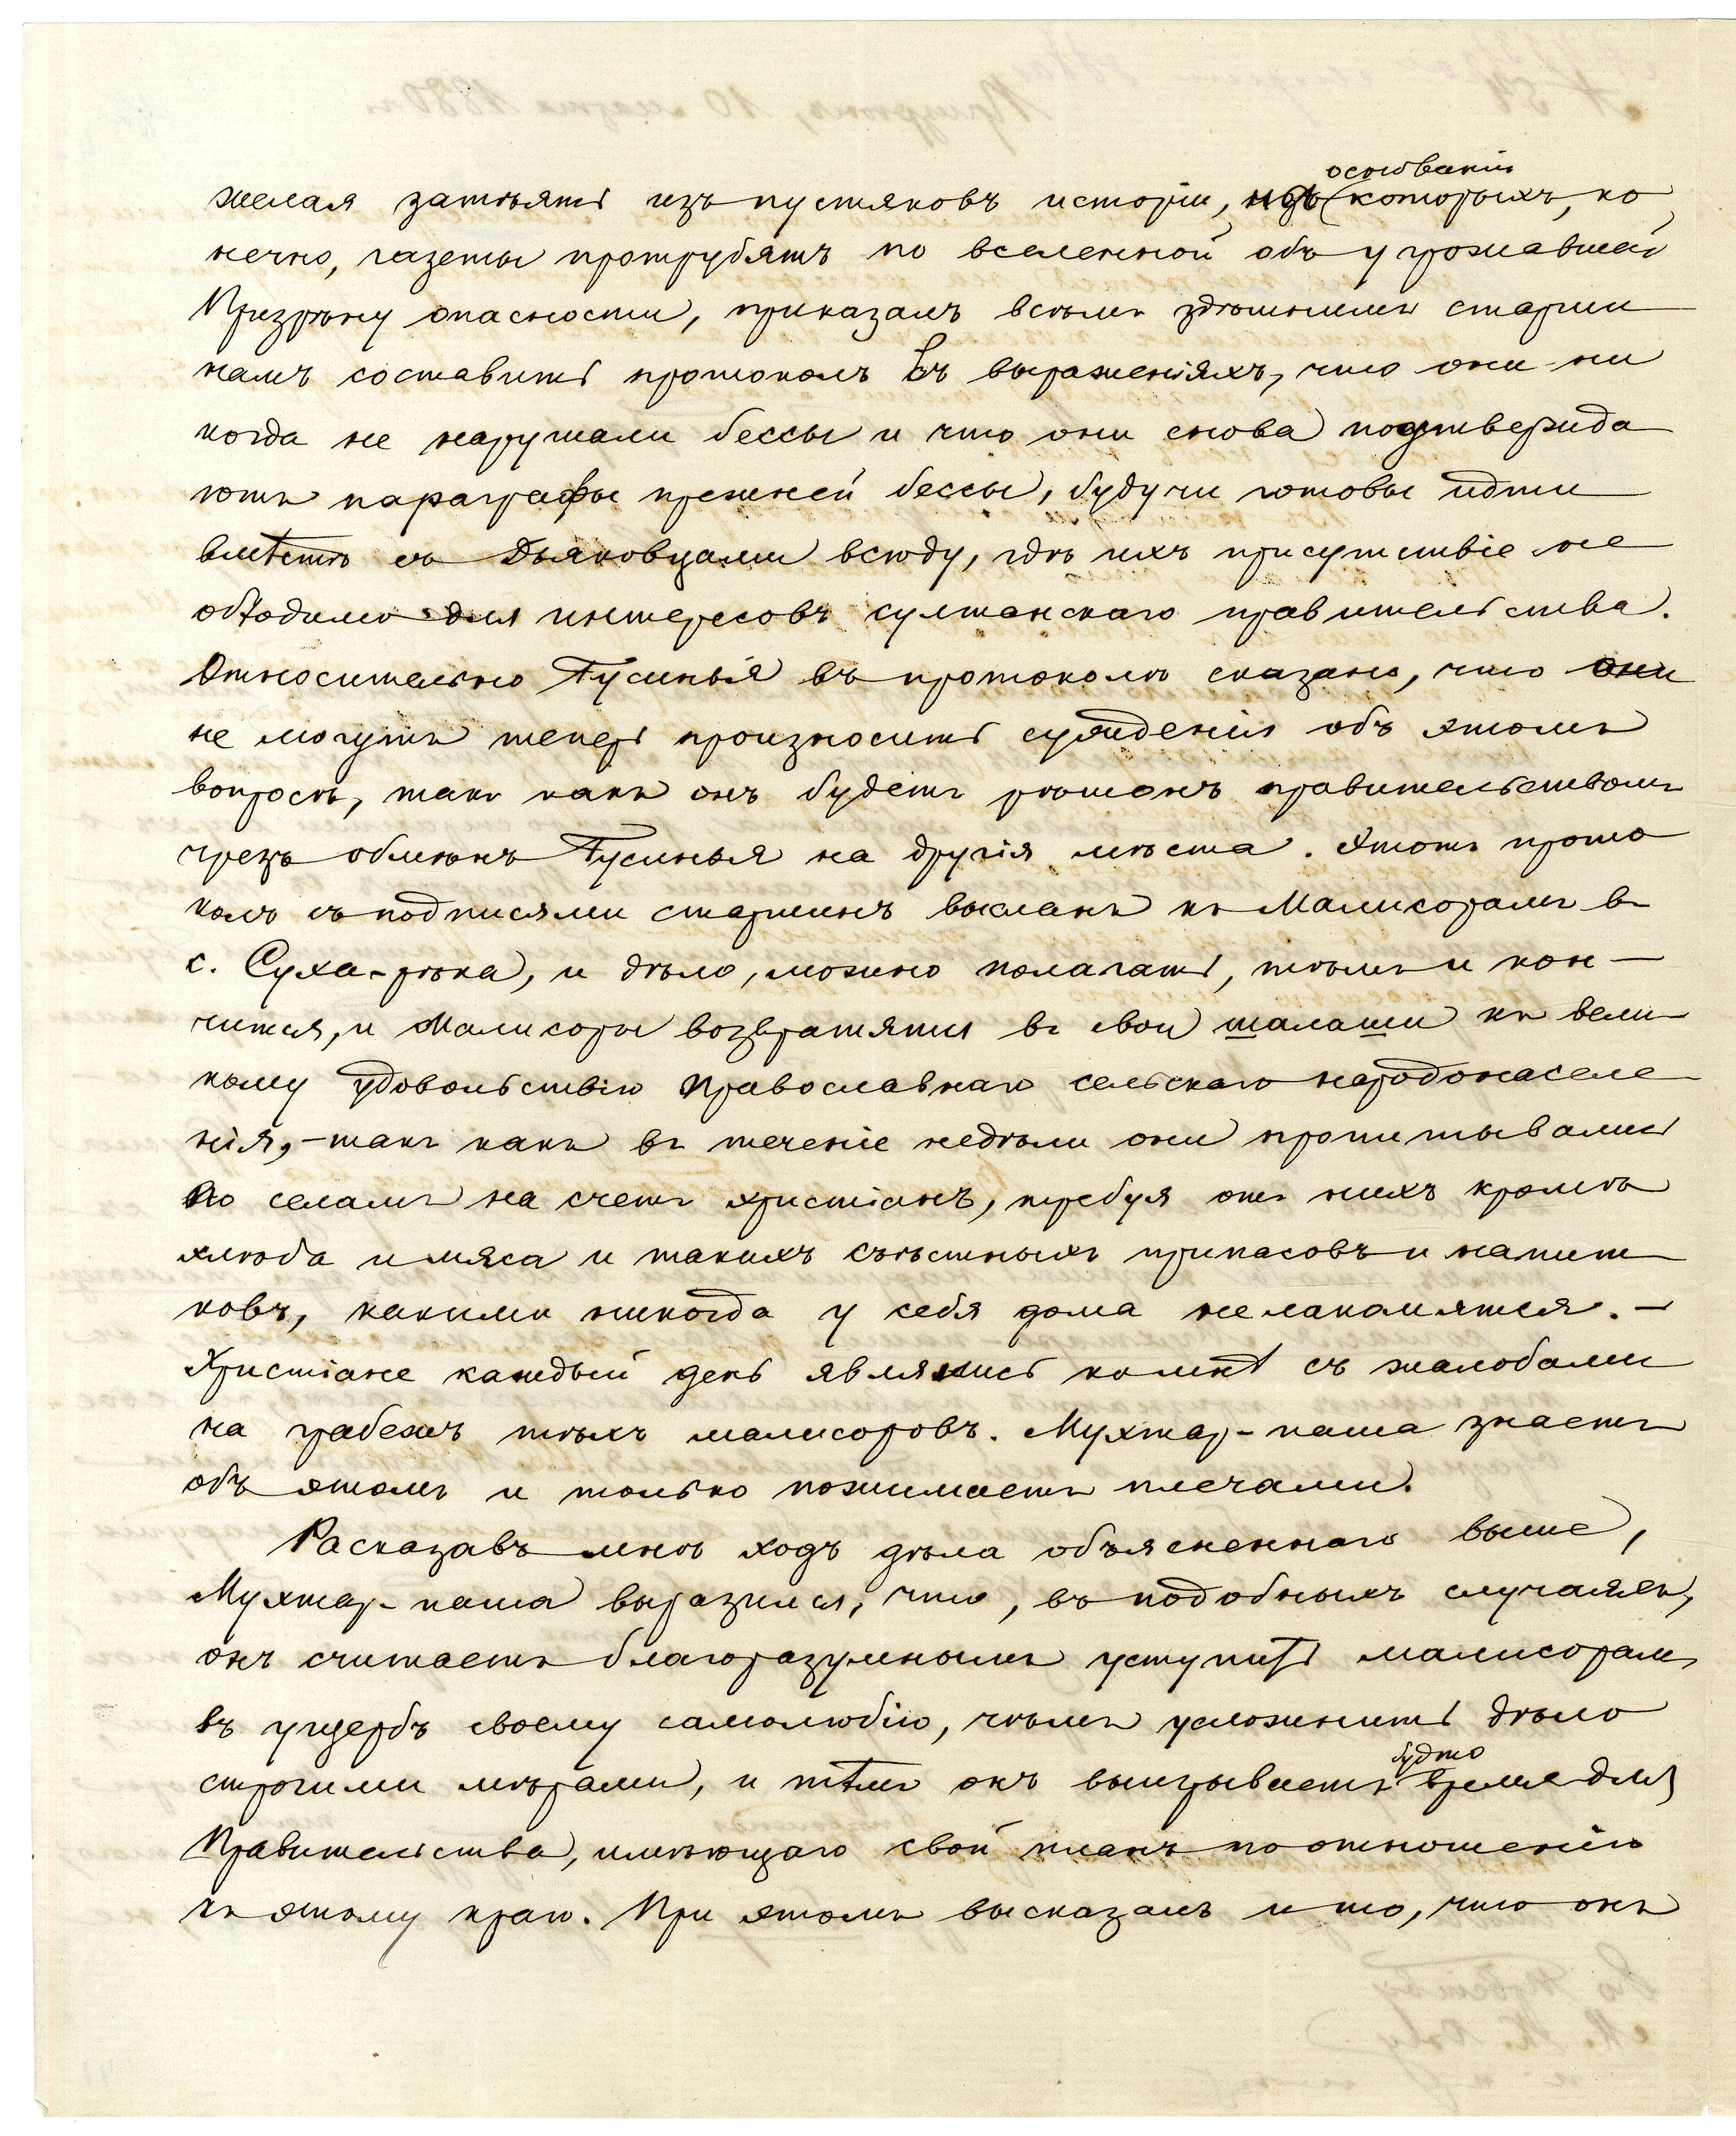 основаніи
желая затѣять изъ пустяковъ исторіи, которыхъ, ко
нечно, газеты протрубятъ по вселенной объ угрожавшей
Призрѣну опасности, приказалъ всѣмъ здѣшнимъ старши
намъ составить протоколъ въ выраженіяхъ, что они ни
когда не нарушали бессы и что они снова подтвержда
ютъ параграфы прежней бессы, будучи готовы идти
вмѣстѣ съ Дьяковцами всюду, гдѣ ихъ присутствіе не
обходимо для интересовъ султанскаго правительства.
Относительно Гусинья въ протоколѣ сказано, что они
не могутъ теперь произносить сужденія объ этомъ
вопросѣ, такъ какъ онъ будетъ рѣшонъ правительствомъ
чрезъ обмѣнъ Гусинья на другія мѣста. Этотъ прото
колъ съ подписями старшинъ высланъ къ Малисорамъ въ
с. Суха-рѣка, и дѣло, можно полагать, тѣмъ и кон-
чится, и Малисоры возвратятся въ свои шалаши къ вели
кому удовольствію православнаго сельскаго народонаселе
нія, - такъ какъ въ теченіе недѣли они пропитывались
по селамъ на счетъ христіанъ, требуя отъ нихъ кромѣ
хлѣба и мяса и такихъ съѣстныхъ припасовъ и напит
ковъ, какими никогда у себя дома не лакомятся. -
Христіане каждый день являлись ко мнѣ съ жалобами
на грабежъ тѣхъ малисоровъ. Мухтар-паша знаетъ
объ этомъ и только пожимаетъ плечами.
Расказавъ мнѣ ходъ дѣла объясненнаго выше,
Мухтар-паша выразился, что, въ подобныхъ случаяхъ,
онъ считаетъ благоразумнымъ уступить малисорамъ
въ ущербъ своему самолюбію, чѣмъ усложнить дѣло
будто
строгими мѣрами, и тѣмъ онъ выигрываетъ время для
Правительства, имѣющаго свой планъ по отношенію
къ этому краю. При этомъ высказалъ и то, что онъ